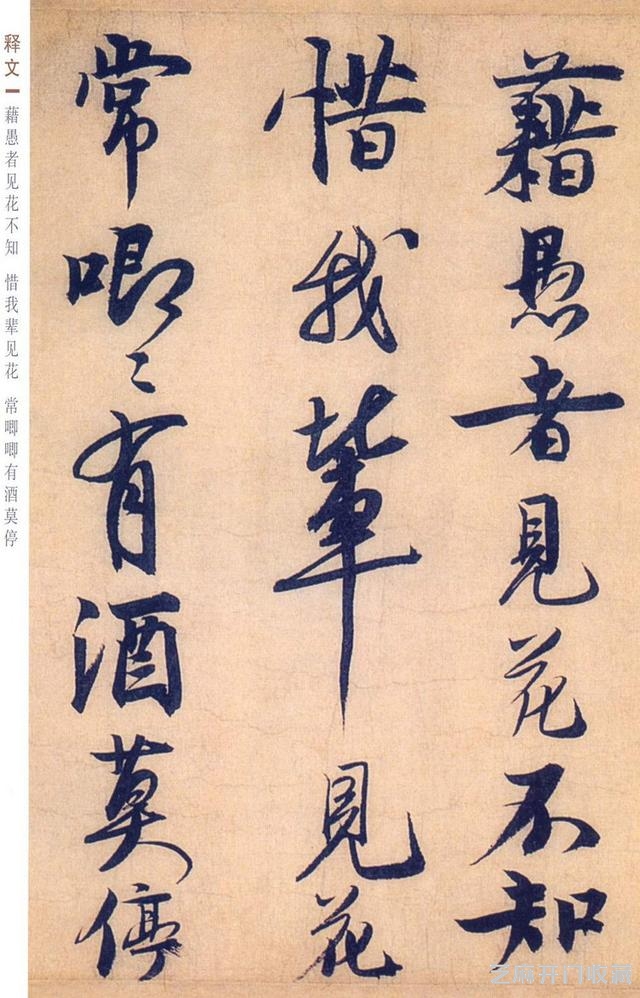 藉愚者見花不知
惜我輩見花
常唧〻有酒莫停
释文
藉愚者见花不知 惜我辈见花 常唧唧有酒莫停
芝麻开门收藏